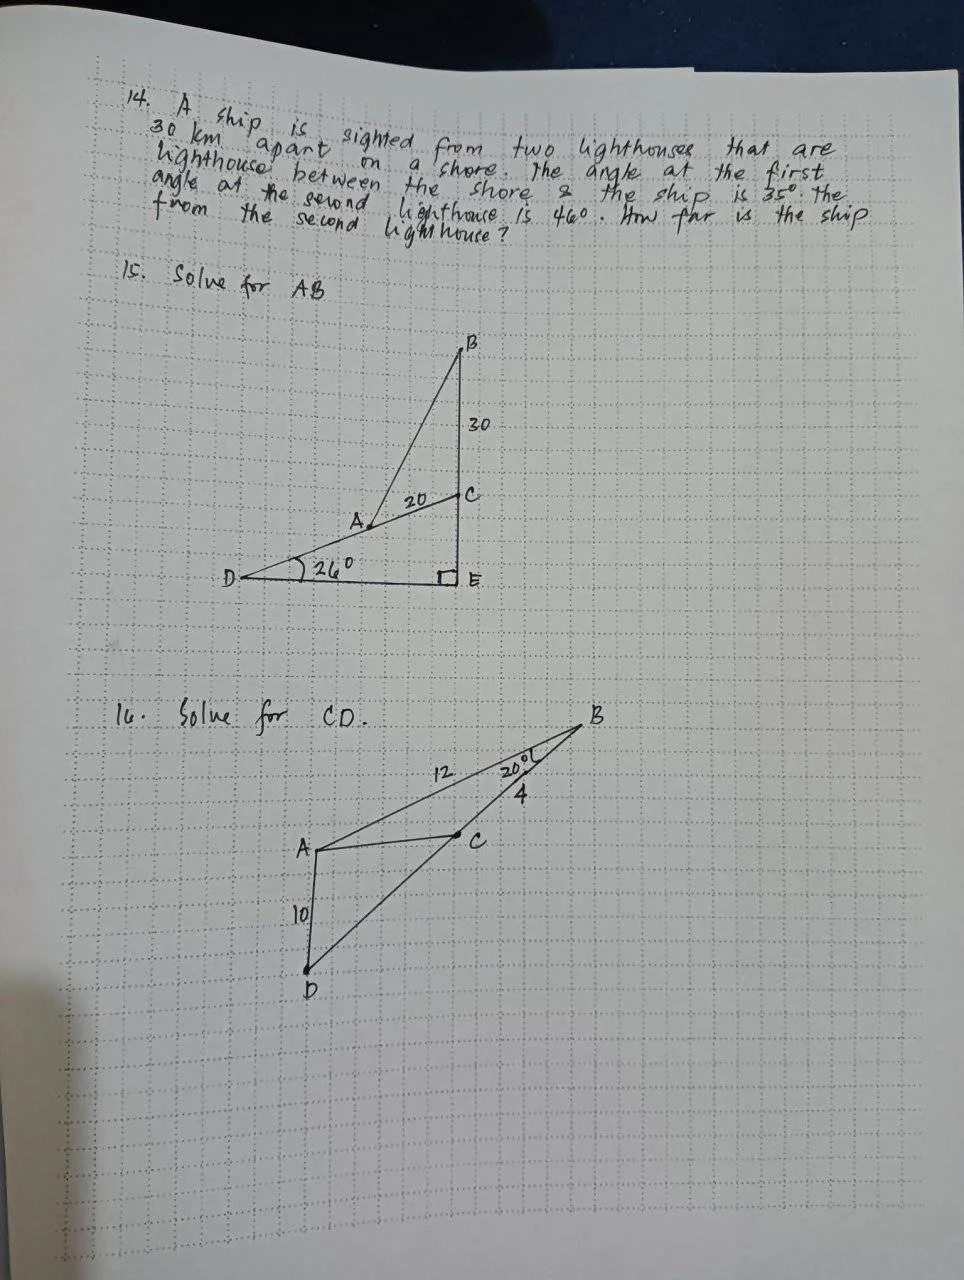 14. A ship is sighted from two lighthouses that are
30 km apart on a shore. The angle at the first
lighthouse between the shore & the ship is 35°. The
angle at the second lighthouse is 46°. How far is the ship
from the second lighthouse?
15. Solve for AB
B
30
C
20
A
26°
D
E
16. Solve for CD.
B
12
20°
4
A
C
10
D